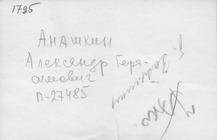 1795
Анашкин
Александр Гера-
симович
П-27485